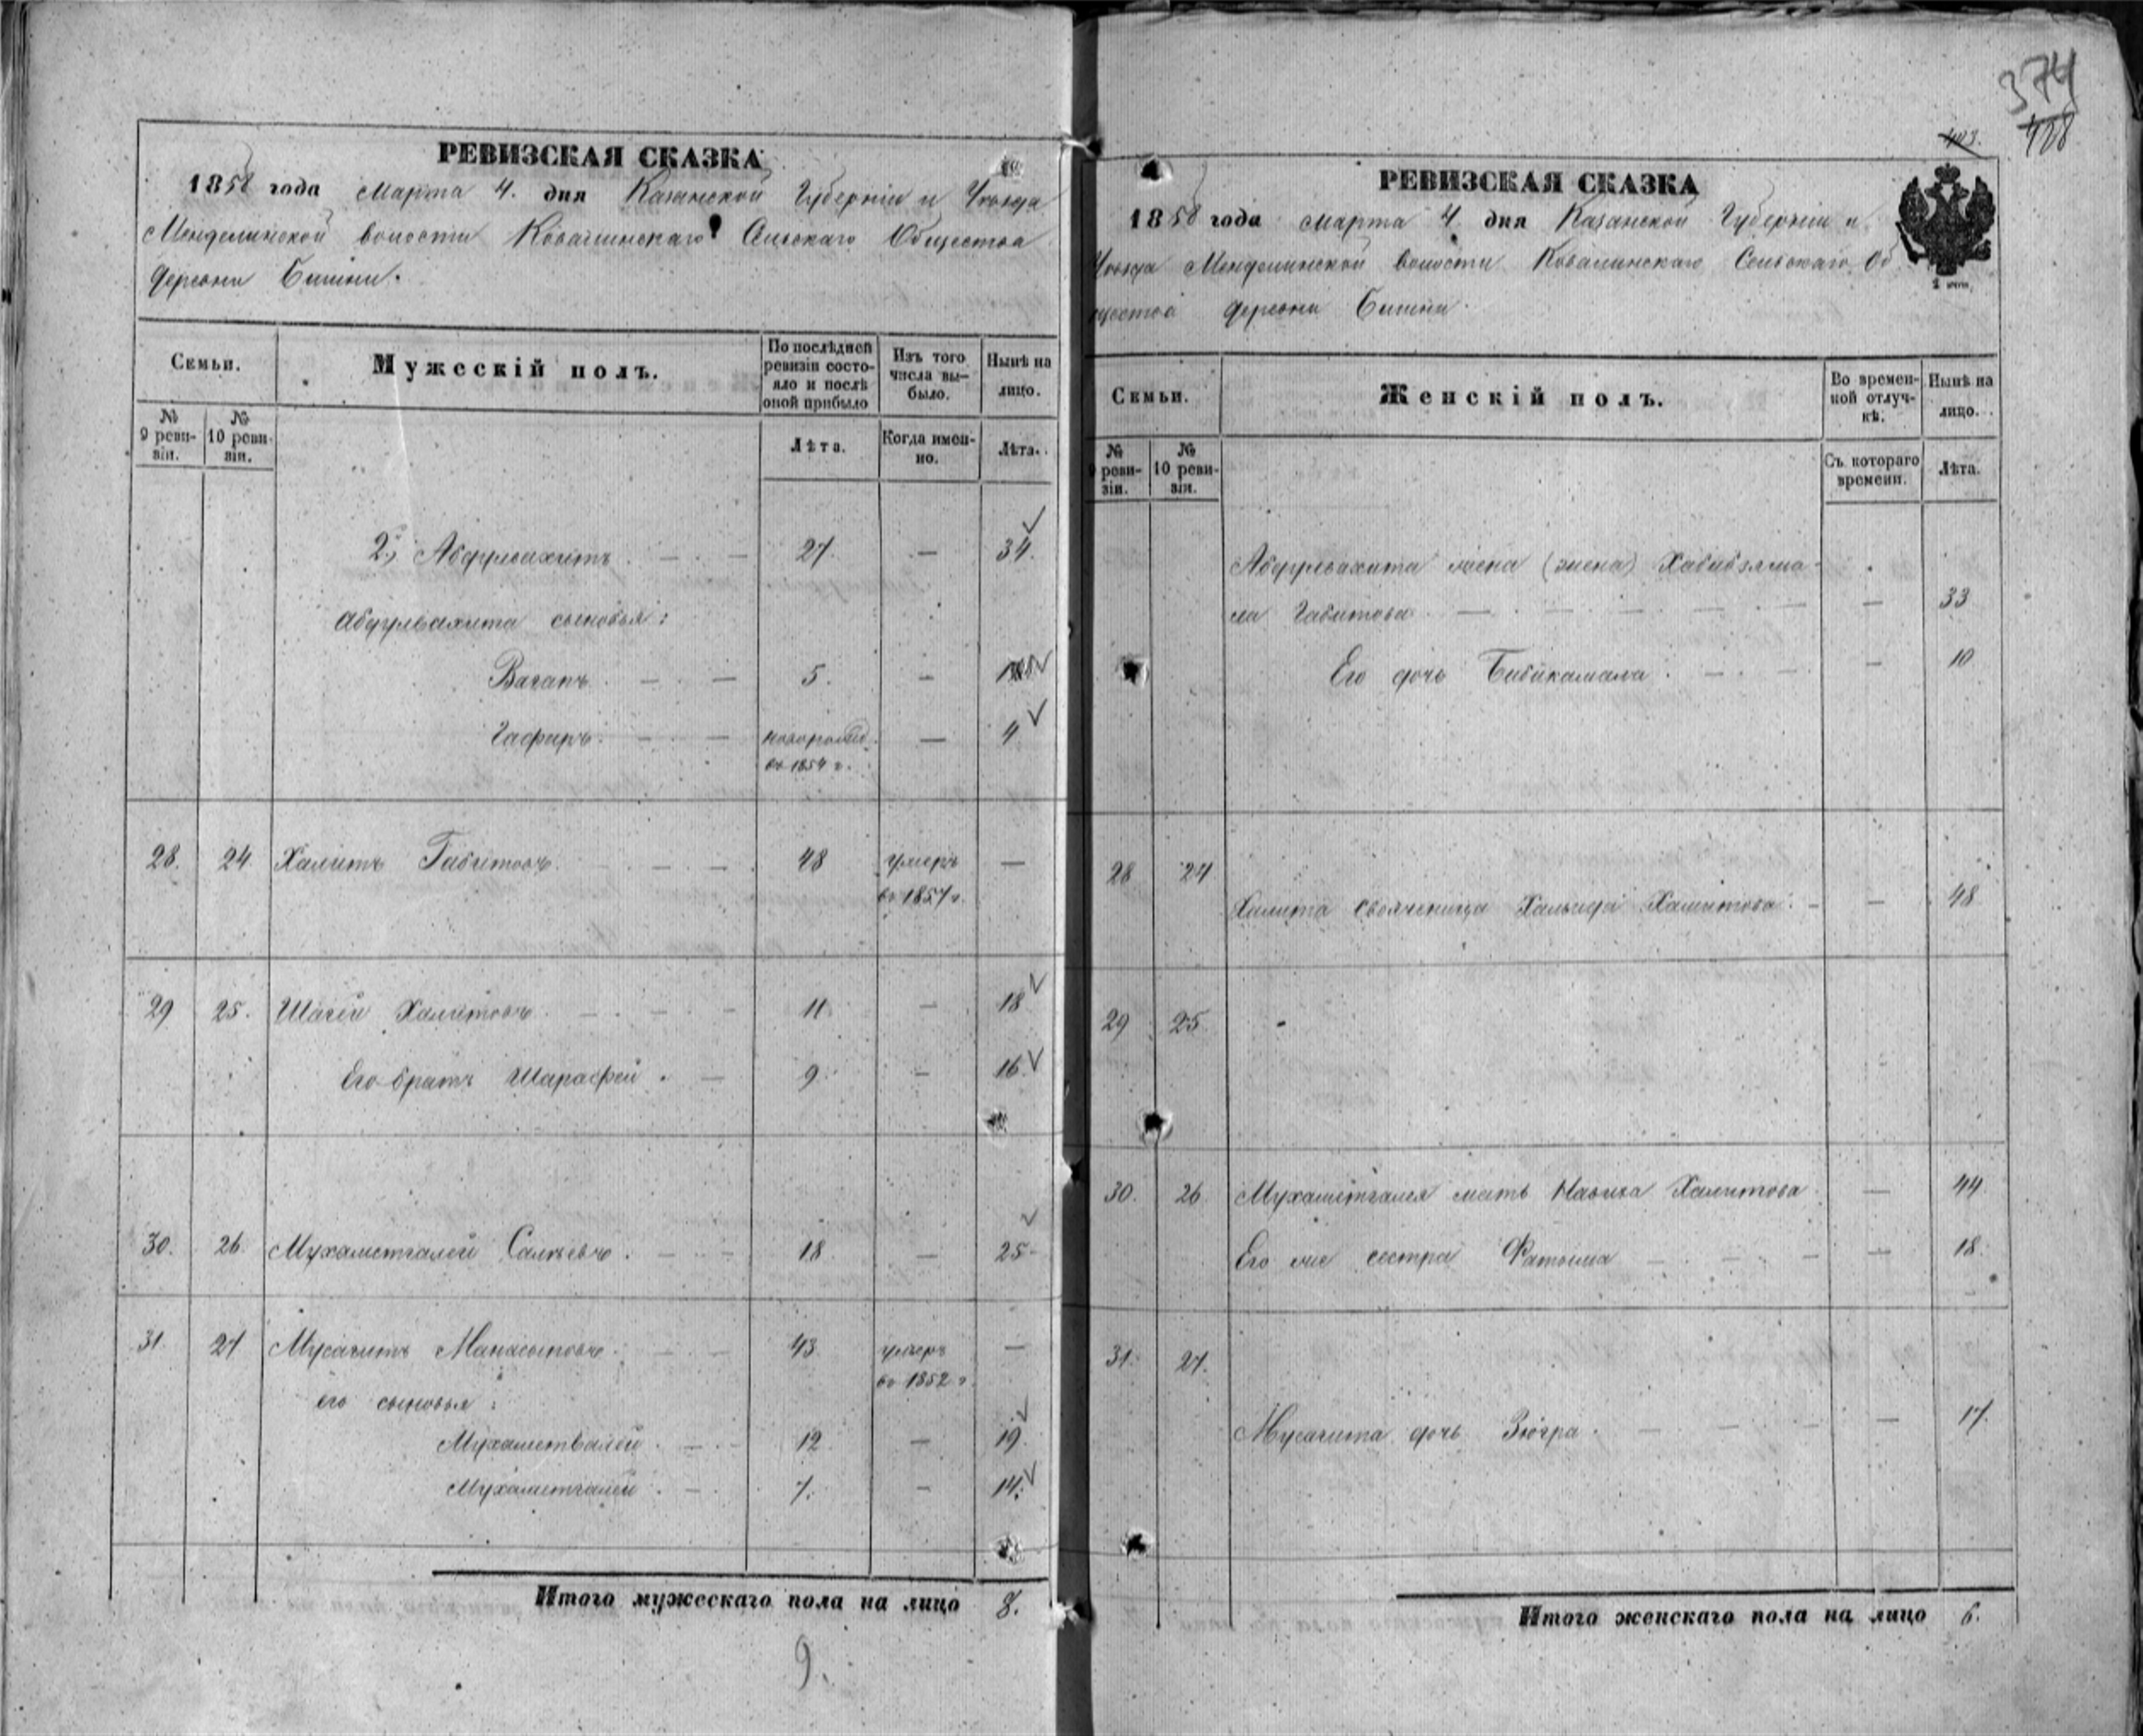 РЕВИЗСКАЯ СКАЗКА
1858 года Марта 4. дня Казанской Губерніи и Уѣзда
Менделинской волости Ковалинскаго Сельскаго Общества
деревни Бишни.
Семьи.
Мужескій полъ.
По послѣдней ревизіи состояло и послѣ оной прибыло
Изъ того числа выбыло.
Нынѣ на лицо.
№ 9 ревизіи.
№ 10 ревизіи.
Лѣта.
Когда именно.
Лѣта.
2, Абдулвахитъ 27. — 34.
Абдулвахита сыновья:
Вагапъ 5. —
Гафиръ. новорожд. — 4
въ 1854 г.
28. 24 Халитъ Габитовъ. 48 умеръ —
въ 1857 г.
29 25. Шагей Халитовъ 11 — 18
Его братъ Шарафей 9 — 16
30. 26. Мухаметгалей 18 — 25
31. 27 Мусагитъ 43 умеръ —
въ 1852 г.
его сыновья:
Мухаметвалей 12 — 19
Мухаметгалей 7. — 14.
Итого мужескаго пола на лицо 8.
9.
374
403.
408
РЕВИЗСКАЯ СКАЗКА
1858 года марта 4. дня Казанской Губерніи и
Уѣзда Менделинской волости Ковалинскаго Сельскаго Об
щества деревни Бишни.
Семьи.
Женскій полъ.
Во временной отлучкѣ.
Нынѣ на лицо.
№ 9 ревизіи.
№ 10 ревизіи.
Съ котораго времени.
Лѣта.
Абдулвахита жена (жена) Хабибзяма-
ла Габитова — 33
Его дочь Бибикамала. — 10
28 24
Халита свояченица Халитова. — 48
29 25
30. 26. Мухаметгалея мать Халитова — 44
Его же сестра Фатыма — 18.
31. 27.
Мусагита дочь Зюгра. — 17.
Итого женскаго пола на лицо 6.